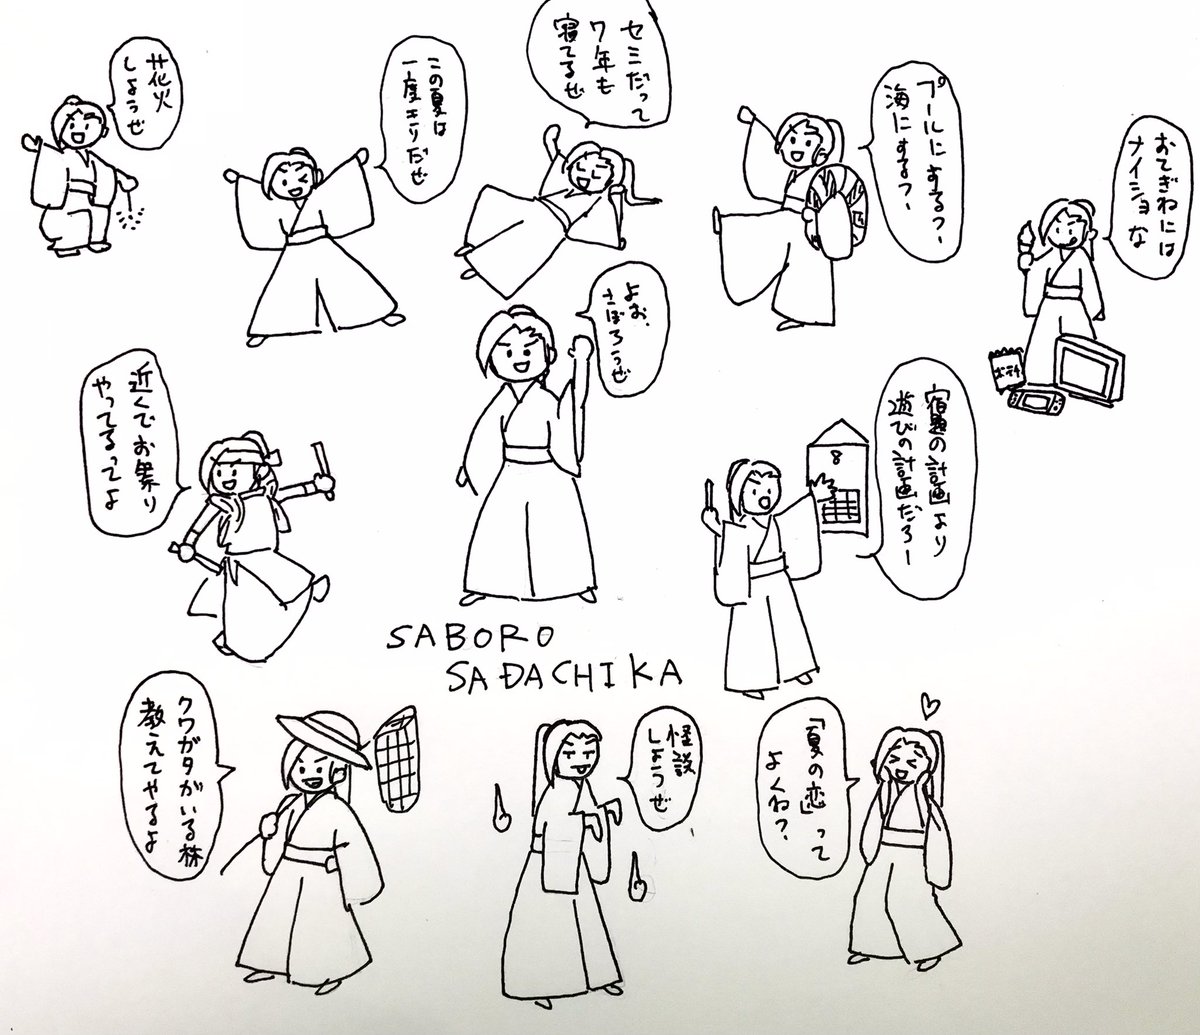 花火
しようぜ
この夏は
一度キリだぜ
セミだって
7年も
寝てるぜ
プールにするっ、
海にするっ、
おてぎわには
ナイショな
ポテチ
よお、
さぼろうぜ
近くでお祭り
やってるってよ
8
宿題の計画より
遊びの計画だろー
SABORO
SADACHIKA
クワガタがいる株
教えてやるよ
怪談
しようぜ
「夏の恋」って
よくね?